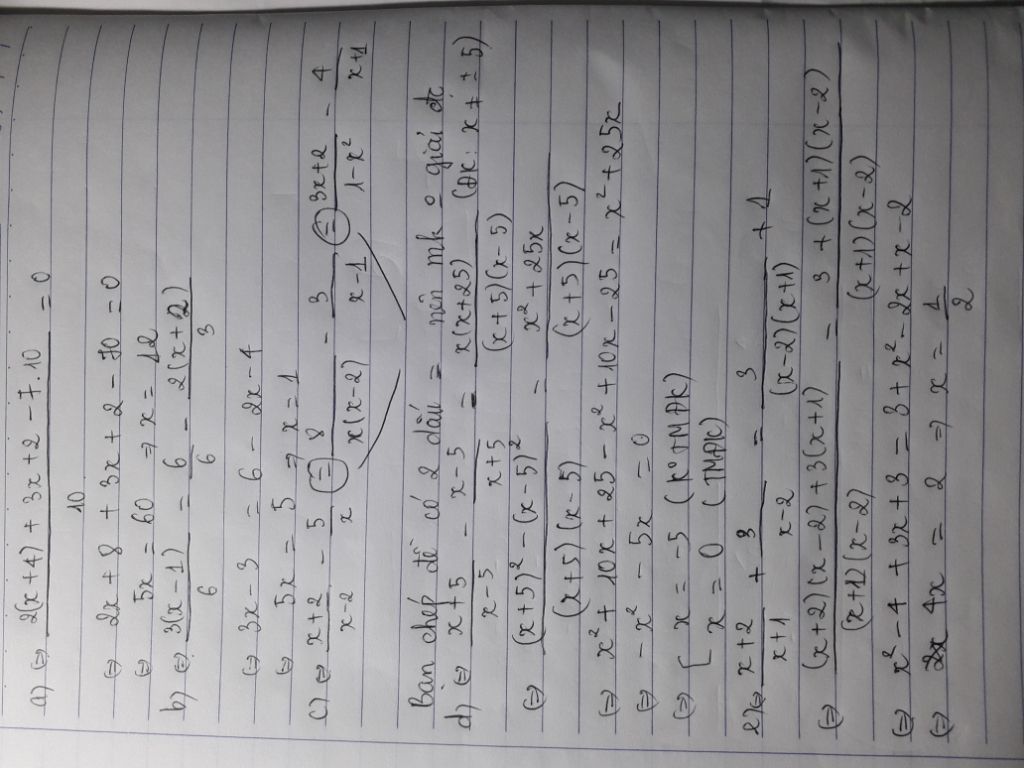 a) ⇔ 2(x+4) + 3x+2 - 7.10 / 10 = 0
⇔ 2x + 8 + 3x + 2 - 70 = 0
⇔ 5x = 60 ⇒ x = 12
b) ⇔ 3(x-1) / 6 = 6 / 6 - 2(x+2) / 3
⇔ 3x - 3 = 6 - 2x - 4
⇔ 5x = 5 ⇒ x = 1
c) ⇔ x+2 / x-2 - 5 / x = 8 / x(x-2) - 3 / x-1 = 3x+2 / 1-x² - 4 / x+1
Bạn chép đề có 2 dấu = nên mk o giải đc
d) ⇔ x+5 / x-5 - x-5 / x+5 = x(x+25) / (x+5)(x-5) (ĐK: x ≠ ± 5)
⇔ (x+5)² - (x-5)² / (x+5)(x-5) = x² + 25x / (x+5)(x-5)
⇔ x² + 10x + 25 - x² + 10x - 25 = x² + 25x
⇔ -x² - 5x = 0
⇔ [ x = -5 (KoTMĐK)
x = 0 (TMĐK)
e) ⇔ x+2 / x+1 + 3 / x-2 = 3 / (x-2)(x+1) + 1
⇔ (x+2)(x-2) + 3(x+1) / (x+1)(x-2) = 3 + (x+1)(x-2) / (x+1)(x-2)
⇔ x² - 4 + 3x + 3 = 3 + x² - 2x + x - 2
⇔ 4x = 2 ⇒ x = 1 / 2